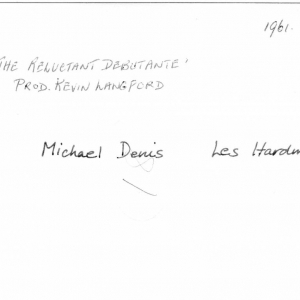 1961.
'THE RELUCTANT DEBUTANTE'
PROD. KEVIN LANGFORD
Michael Denis Les Hardm